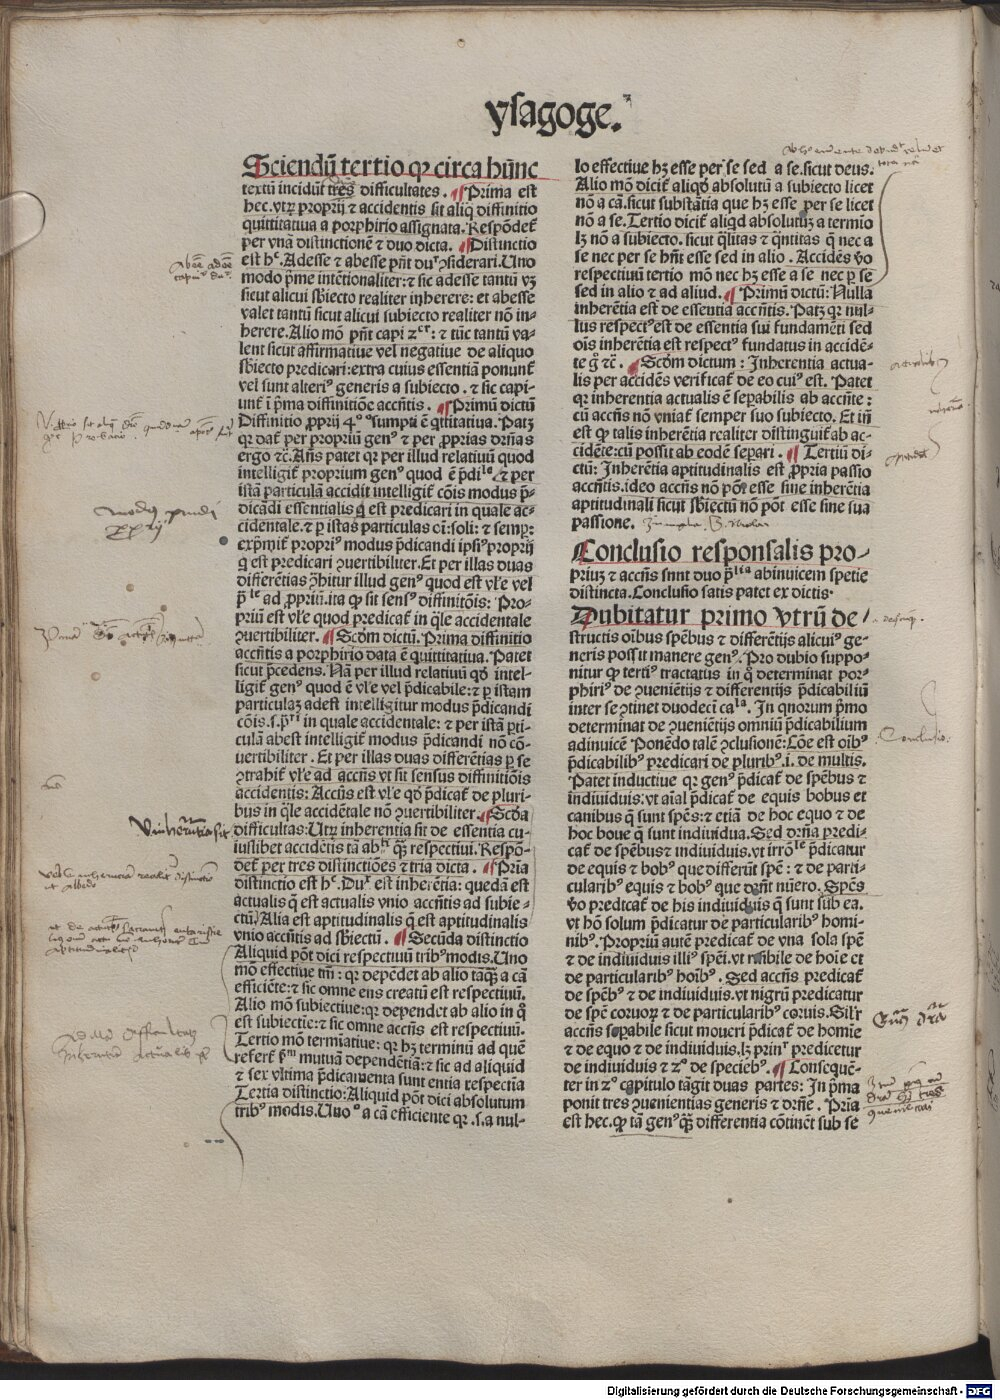 ysagoge.
Sciendū tertio qꝛ circa hūnc
textū incidūt tres difficultates. ¶ Prima est
hec. vtꝝ proprij ⁊ accidentis sit aliq̄ diffinitio
quittitatiua a porphirio assignata. Respōdet᷑
per vnā distinctionē ⁊ duo dicta. ¶ Distinctio
est hᶜ. Adesse ⁊ abesse pn̄t duʳ ꝯsiderari. Uno
modo ṗme intētionaliter: ⁊ sic adesse tantū vꝫ
sicut alicui sb̄iecto realiter inherere: et abesse
valet tantū sicut alicui subiecto realiter nō in-
herere. Alio mō pn̄t capi 2ᵉʳ: ⁊ tūc tantū va-
lent sicut affirmatiue vel negatiue de aliquo
sb̄iecto predicari: extra cuius essentiā ponunt᷑
vel sunt alteriꝰ generis a subiecto. ⁊ sic capi-
unt᷑ ī ṗma diffinitiōe accn̄tis. ¶ Primū dictū
Diffinitio ꝓprij 4ᵒ ᵒsumpti ē q̇titatiua. Patꝫ
qꝛ dat᷑ per proprium genꝰ ⁊ per ꝓprias drn̄as
ergo ⁊c̄. An̄s patet qꝛ per illud relatiuū quod
intelligit᷑ proprium genꝰ quod ē p̄diˡᵉ ⁊ per
istā particulā accidit intelligit᷑ cōis modus p̄-
dicādi essentialis q̄ est predicari in quale ac-
cidentale. ⁊ ꝑ istas particulas cī: soli: ⁊ semꝑ:
exp̄mit᷑ propriꝰ modus p̄dicandi ipsiꝰ proprij
q̄ est predicari ꝯuertibiliter. Et per illas duas
differētias ꝓhibitur illud genꝰ quod est vl̄e vel
p̄ˡᵉ ad ꝓpriū. ita ꝙ sit sensꝰ diffinitōis: Pro-
priū est vl̄e quod predicat᷑ in q̄le accidentale
ꝯuertibiliter. ¶ Scd̄m dictū. Prima diffinitio
accn̄tis a porphirio data ē quittitatiua. Patet
sicut p̄cedens. Nā per illud relatiuū qd̄ intel-
ligit᷑ genꝰ quod ē vl̄e vel p̄dicabile: ⁊ ꝑ istam
particulaꝫ adest intelligitur modus p̄dicandi
cōis. s. p̄ʳⁱ in quale accidentale: ⁊ per istā ꝑti-
culā abest intelligit᷑ modus p̄dicandi nō cō-
uertibiliter. Et per illas duas differētias ꝑ se
ꝯtrahit᷑ vl̄e ad accn̄s vt sit sensus diffinitiōis
accidentis: Accn̄s est vl̄e qd̄ p̄dicat᷑ de pluri-
bus in q̄le accidētale nō ꝯuertibiliter. ¶ Scd̄a
difficultas: Utꝝ inherentia sit de essentia cu-
iuslibet accidētis tā abᵗⁱ qꝫ respectiui. Respō-
det᷑ per tres distinctiōes ⁊ tria dicta. ¶ Pria
distinctio est hᶜ. Duˣ est inherētia: quedā est
actualis q̄ est actualis vnio accn̄tis ad subie-
ctū. Alia est aptitudinalis q̄ est aptitudinalis
vnio accn̄tis ad sb̄iectū. ¶ Secūda distinctio
Aliquid pōt dici respectiuū tribꝰ modis. Uno
mō effectiue tm̄: qꝛ depēdet ab alio tāqꝫ a cā
efficiēte: ⁊ sic omne ens creatū est respectiuū.
Alio mō subiectiue: qꝛ dependet ab alio in q̊
est subiectie: ⁊ sic omne accn̄s est respectiuū.
Tertio mō termiatiue: qꝛ hꝫ terminū ad quē
refert᷑ ẜᵐ mutuā dependētiā: ⁊ sic ad aliquid
⁊ sex vltima p̄dicamēta sunt entia respectia
Tertia distinctio: Aliquid pōt dici absolutum
tribꝰ modis. Uno ᵒ a cā efficiente qꝛ .s. a nul-
lo effectiue hꝫ esse per se sed a se. sicut deus.
Alio mō dicit᷑ aliqd̄ absolutū a subiecto licet
nō a cā. sicut substātia que hꝫ esse per se licet
nō a se. Tertio dicit᷑ aliqd absolutuꝫ a termio
lꝫ nō a subiecto. sicut q̄litas ⁊ q̄ntitas q̄ nec a
se nec per se hn̄t esse sed in alio. Accidēs v̊o
respectiuū tertio mō nec hꝫ esse a se nec ꝑ se
sed in alio ⁊ ad aliud. ¶ Primū dictū: Nulla
inherētia est de essentia accn̄tis. Patꝫ qꝛ nul-
lus respectꝰ est de essentia sui fundamēti sed
oīs inherētia est respectꝰ fundatus in accidē-
te g̊ ⁊c̄. ¶ Scd̄m dictum: Inherentia actua-
lis per accidēs verificat᷑ de eo cuiꝰ est. Patet
qꝛ inherentia actualis ē seꝑabilis ab accn̄te:
cū accn̄s nō vniat᷑ semper suo subiecto. Et in̄
est ꝙ talis inherētia realiter distinguit᷑ ab ac-
cidēte: cū possit ab eodē seꝑari. ¶ Tertiū di-
ctū: Inherētia aptitudinalis est ꝓpria passio
accn̄tis. ideo accn̄s nō pōt esse sine inherētia
aptitudinali sicut sb̄iectū nō pōt esse sine sua
passione.
Conclusio responsalis pro-
priuꝫ ⁊ accn̄s sunt duo p̄ˡⁱᵃ abinuicem spetie
distincta. Conclusio satis patet ex dictis.
Dubitatur primo vtrū de
structis oībus spēbus ⁊ differētijs alicuiꝰ ge-
neris possit manere genꝰ. Pro dubio suppo-
nitur ꝙ tertiꝰ tractatus in q̊ determinat por-
phiriꝰ de ꝯueniētijs ⁊ differentijs p̄dicabiliū
inter se ꝯtinet duodecī caˡᵃ. In quorum ṗmo
determinat de ꝯueniētijs omniū p̄dicabilium
adinuicē Ponēdo talē ꝯclusionē: Cōe est oībꝰ
p̄dicabilibꝰ predicari de pluribꝰ .i. de multis.
Patet inductiue qꝛ genꝰ p̄dicat᷑ de spēbus ⁊
indiuiduis: vt aīal p̄dicat᷑ de equis bobus et
canibus q̄ sunt spēs: ⁊ etiā de hoc equo ⁊ de
hoc boue q̄ sunt indiuidua. Sed drn̄a predi-
cat᷑ de spēbus ⁊ indiuiduis. vt irrōˡᵉ p̄dicatur
de equis ⁊ bobꝰ que differūt spē: ⁊ de parti-
cularibꝰ equis ⁊ bobꝰ que drn̄t nūero. Spēs
v̊o predicat᷑ de his indiuiduis q̄ sunt sub ea.
vt hō solum p̄dicatur de particularibꝰ homi-
nibꝰ. Propriū autē predicat᷑ de vna sola spē
⁊ de indiuiduis illiꝰ spēi. vt risibile de hoīe et
de particularibꝰ hoībꝰ. Sed accn̄s predicat᷑
de spēbꝰ ⁊ de indiuiduis. vt nigrū predicatur
de spē coruoꝝ ⁊ de particularibꝰ coruis. Silr̄
accn̄s seꝑabile sicut moueri p̄dicat᷑ de homīe
⁊ de equo ⁊ de indiuiduis. lꝫ prinʳ predicetur
de indiuiduis ⁊ 2ᵒ de speciebꝰ. ¶ Consequē-
ter in 2ᵒ capitulo tāgit duas partes: In ṗma
ponit tres ꝯuenientias generis ⁊ drn̄e. Pria
est hec. ꝙ tā genꝰ qꝫ differentia cōtinēt sub se
Conclusio
Digitalisierung gefördert durch die Deutsche Forschungsgemeinschaft - DFG